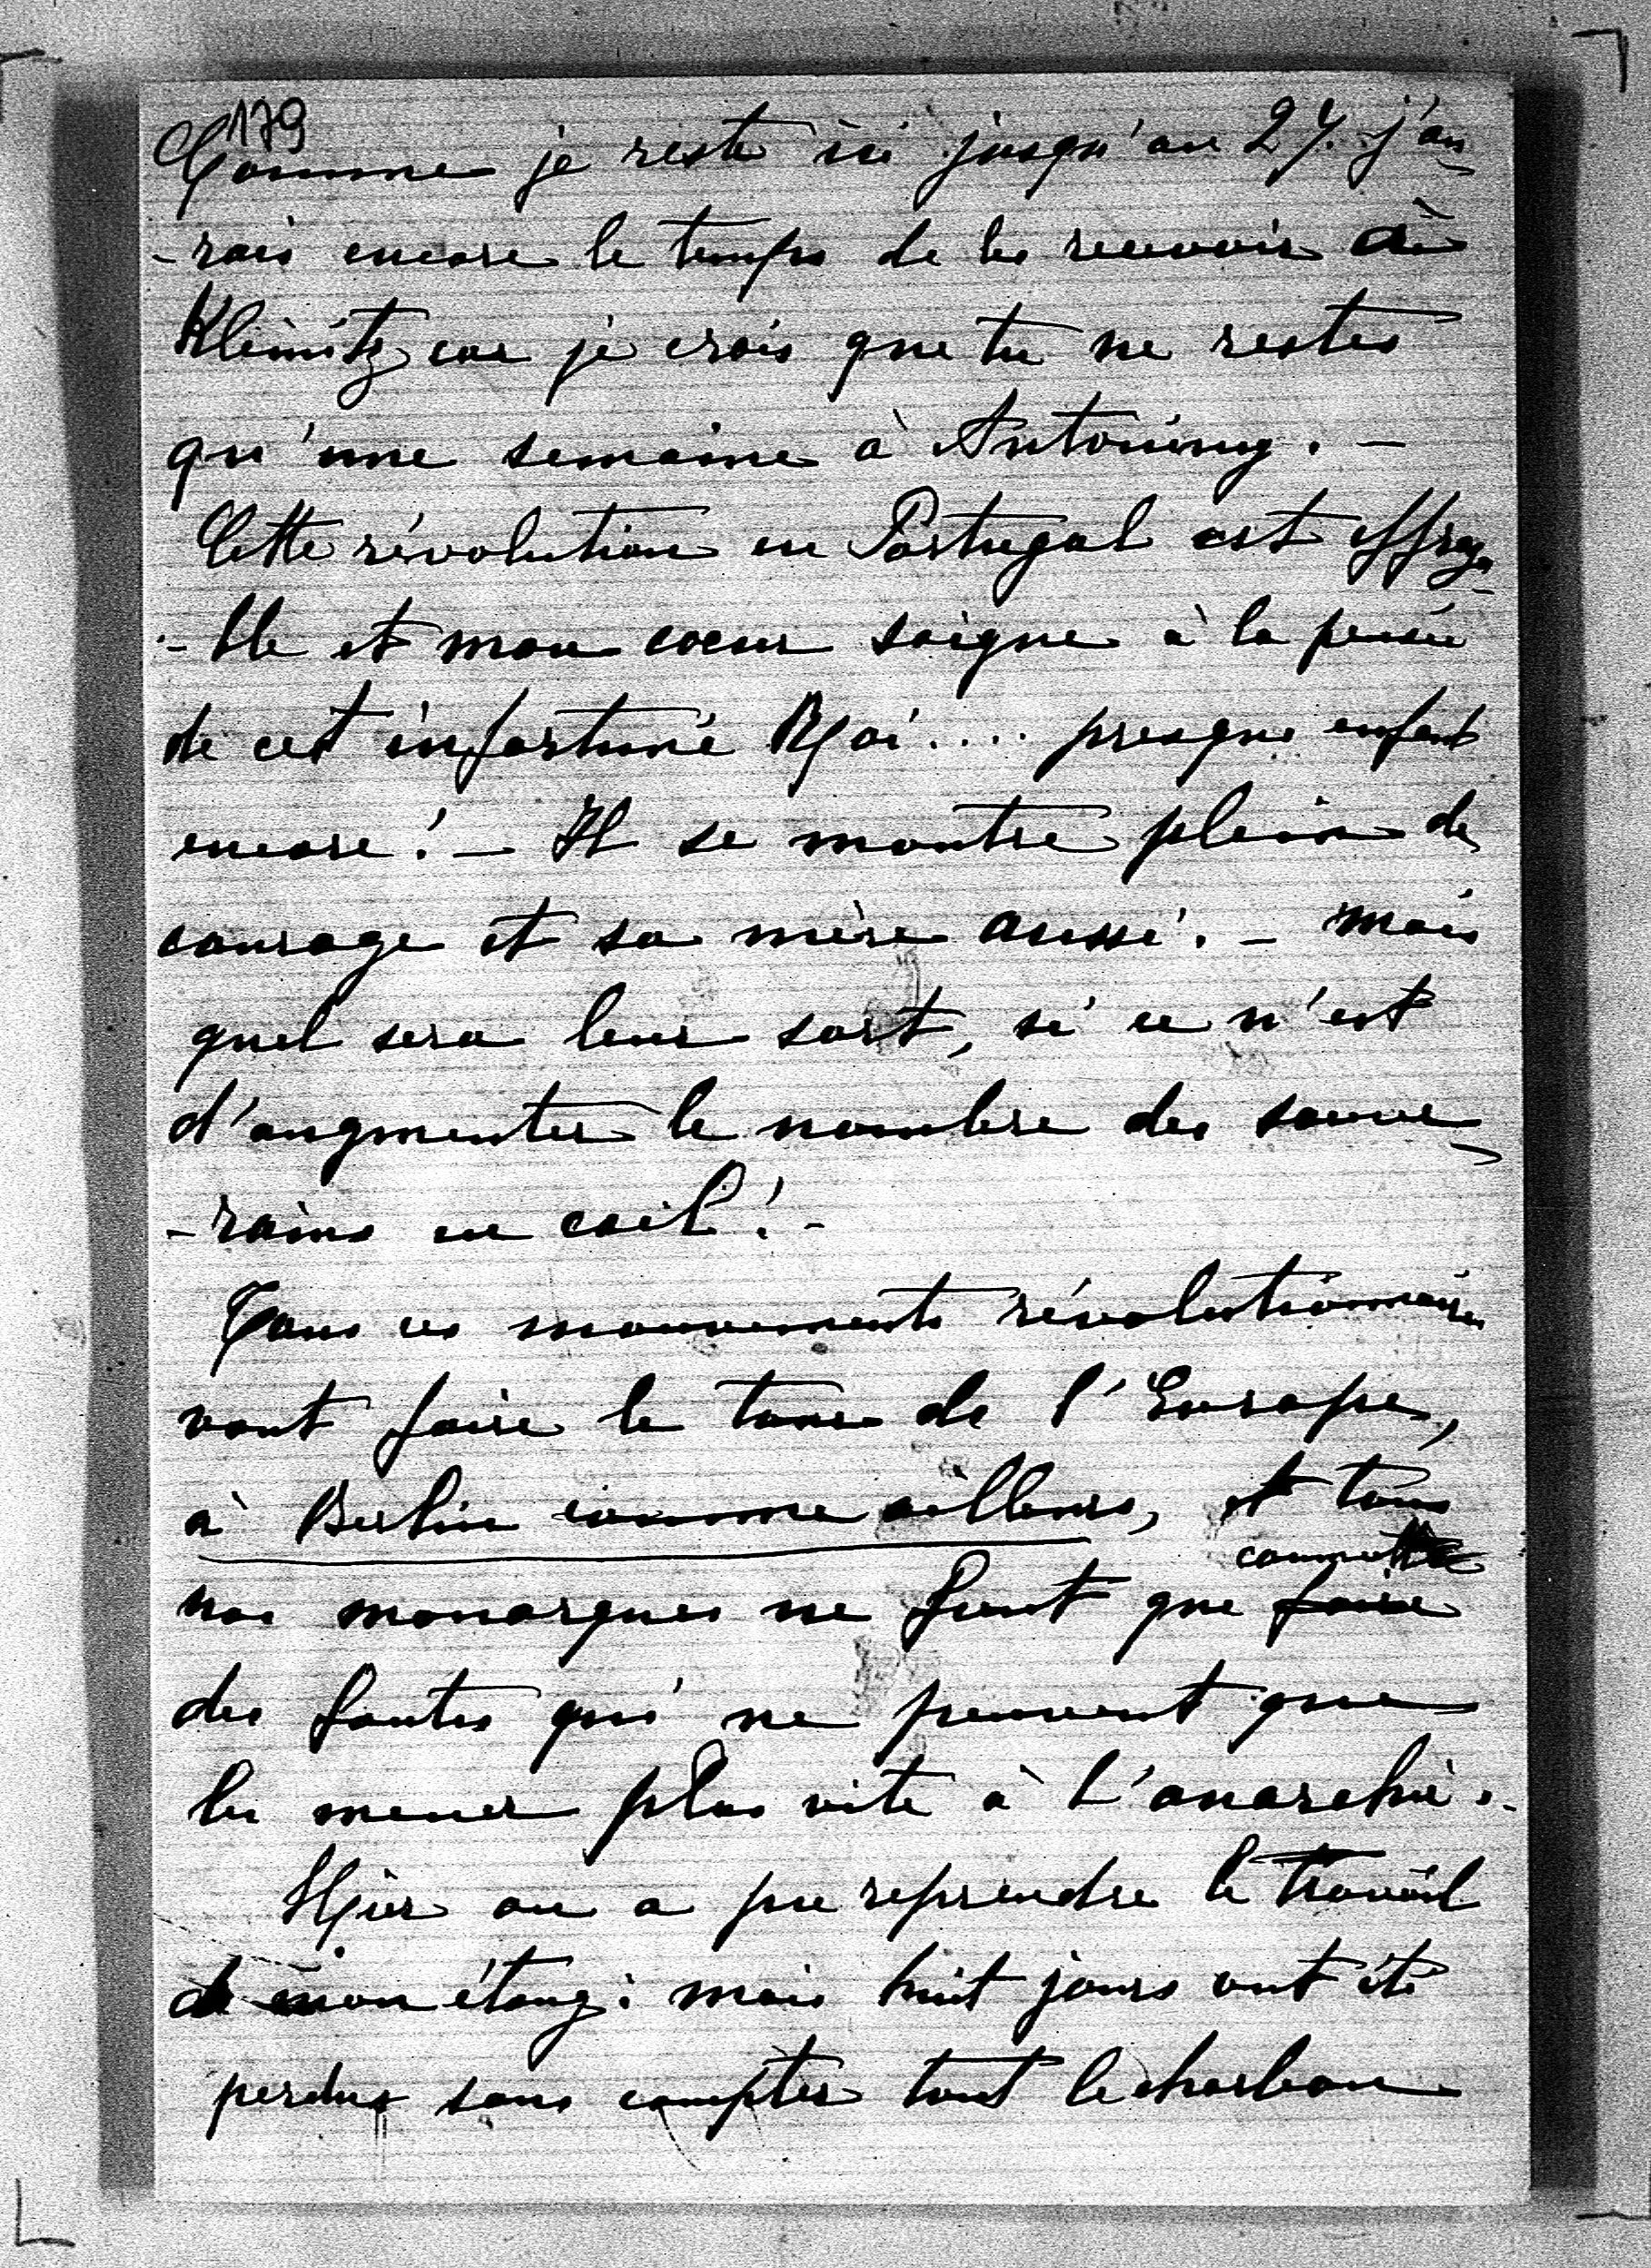 179
Comme je reste ici jusqu'au 27. j'au-
-rais encore le temps de les recevoir de
Klemitz car je crois que tu ne restes
qu'une semaine à Antoniny. -
Cette révolution en Portugal est effroya-
-ble et mon coeur saigne à la pensée
de cet infortuné Roi .... presque enfant
encore! - Il se montre plein de
courage et sa mère aussi. - Mais
quel sera leur sort, si ce n'est
d'augmenter le nombre des souve-
-rains en exil! -
Tous ces mouvements révolutionnaires
vont faire le tour de l'Europe,
à Berlin comme ailleurs, et tous
nos monarques ne font que faire commettre
des fautes qui ne peuvent que
les mener plus vite à l'anarchie. -
Hier on a pu reprendre le travail
de mon étang: mais huit jours ont été
perdus sans compter tout le charbon